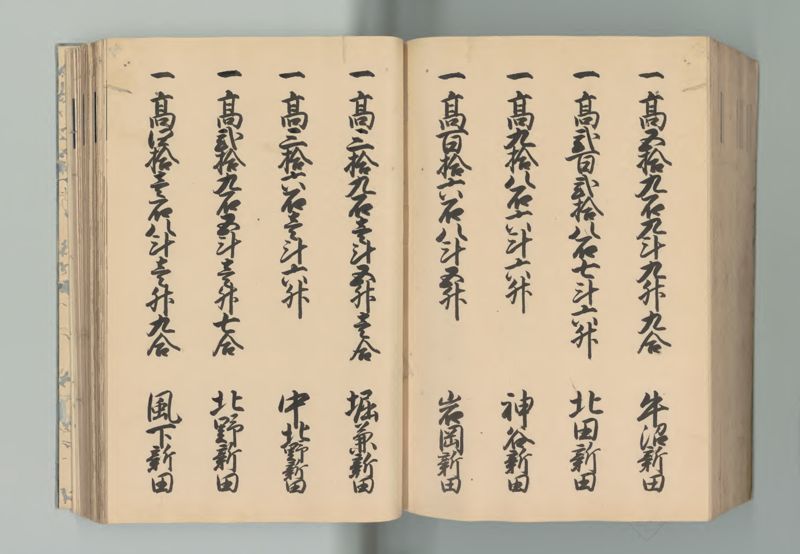 一 高五拾九石九斗九升九合 牛沼新田
一 高弐百弐拾八石七斗六升 北田新田
一 高九拾八石六斗六升 神谷新田
一 高百拾六石八斗五升 岩岡新田
一 高三拾九石壱斗五升壱合 堀兼新田
一 高三拾六石壱斗六升 中北野新田
一 高弐拾九石五斗壱升七合 北野新田
一 高四拾壱石八斗壱升九合 風下新田